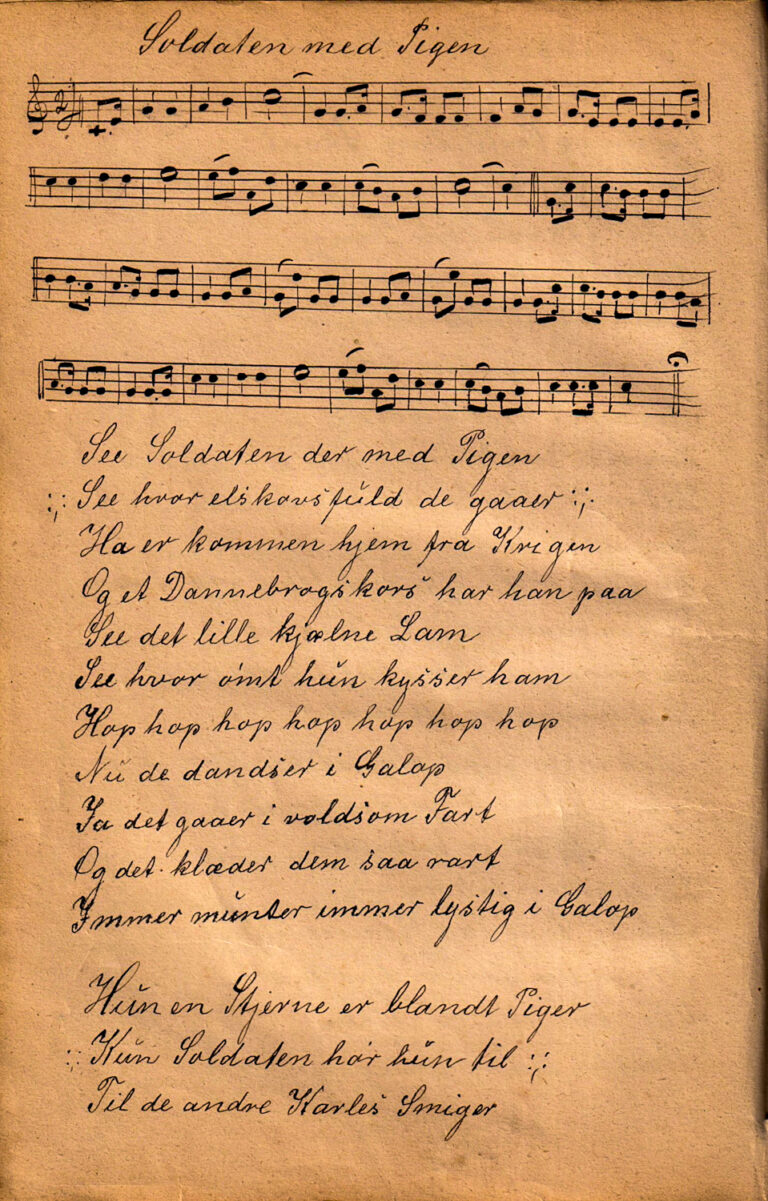 Soldaten med Pigen
2
See Soldaten der med Pigen
:;: See hvor elskovsfuld de gaaer :;:
Ha er kommen hjem fra Krigen
Og et Dannebrogskors har han paa
See det lille kjælne Lam
See hvor ómt hun kysser ham
Hop hop hop hop hop hop hop
Nu de dandser i Galop
Ja det gaaer i voldsom Fart
Og det klæder dem saa rart
Immer munter immer lystig i Galop
Hun en Stjerne er blandt Piger
:;: Kun Soldaten hór hun til :;:
Til de andre Karles Smiger